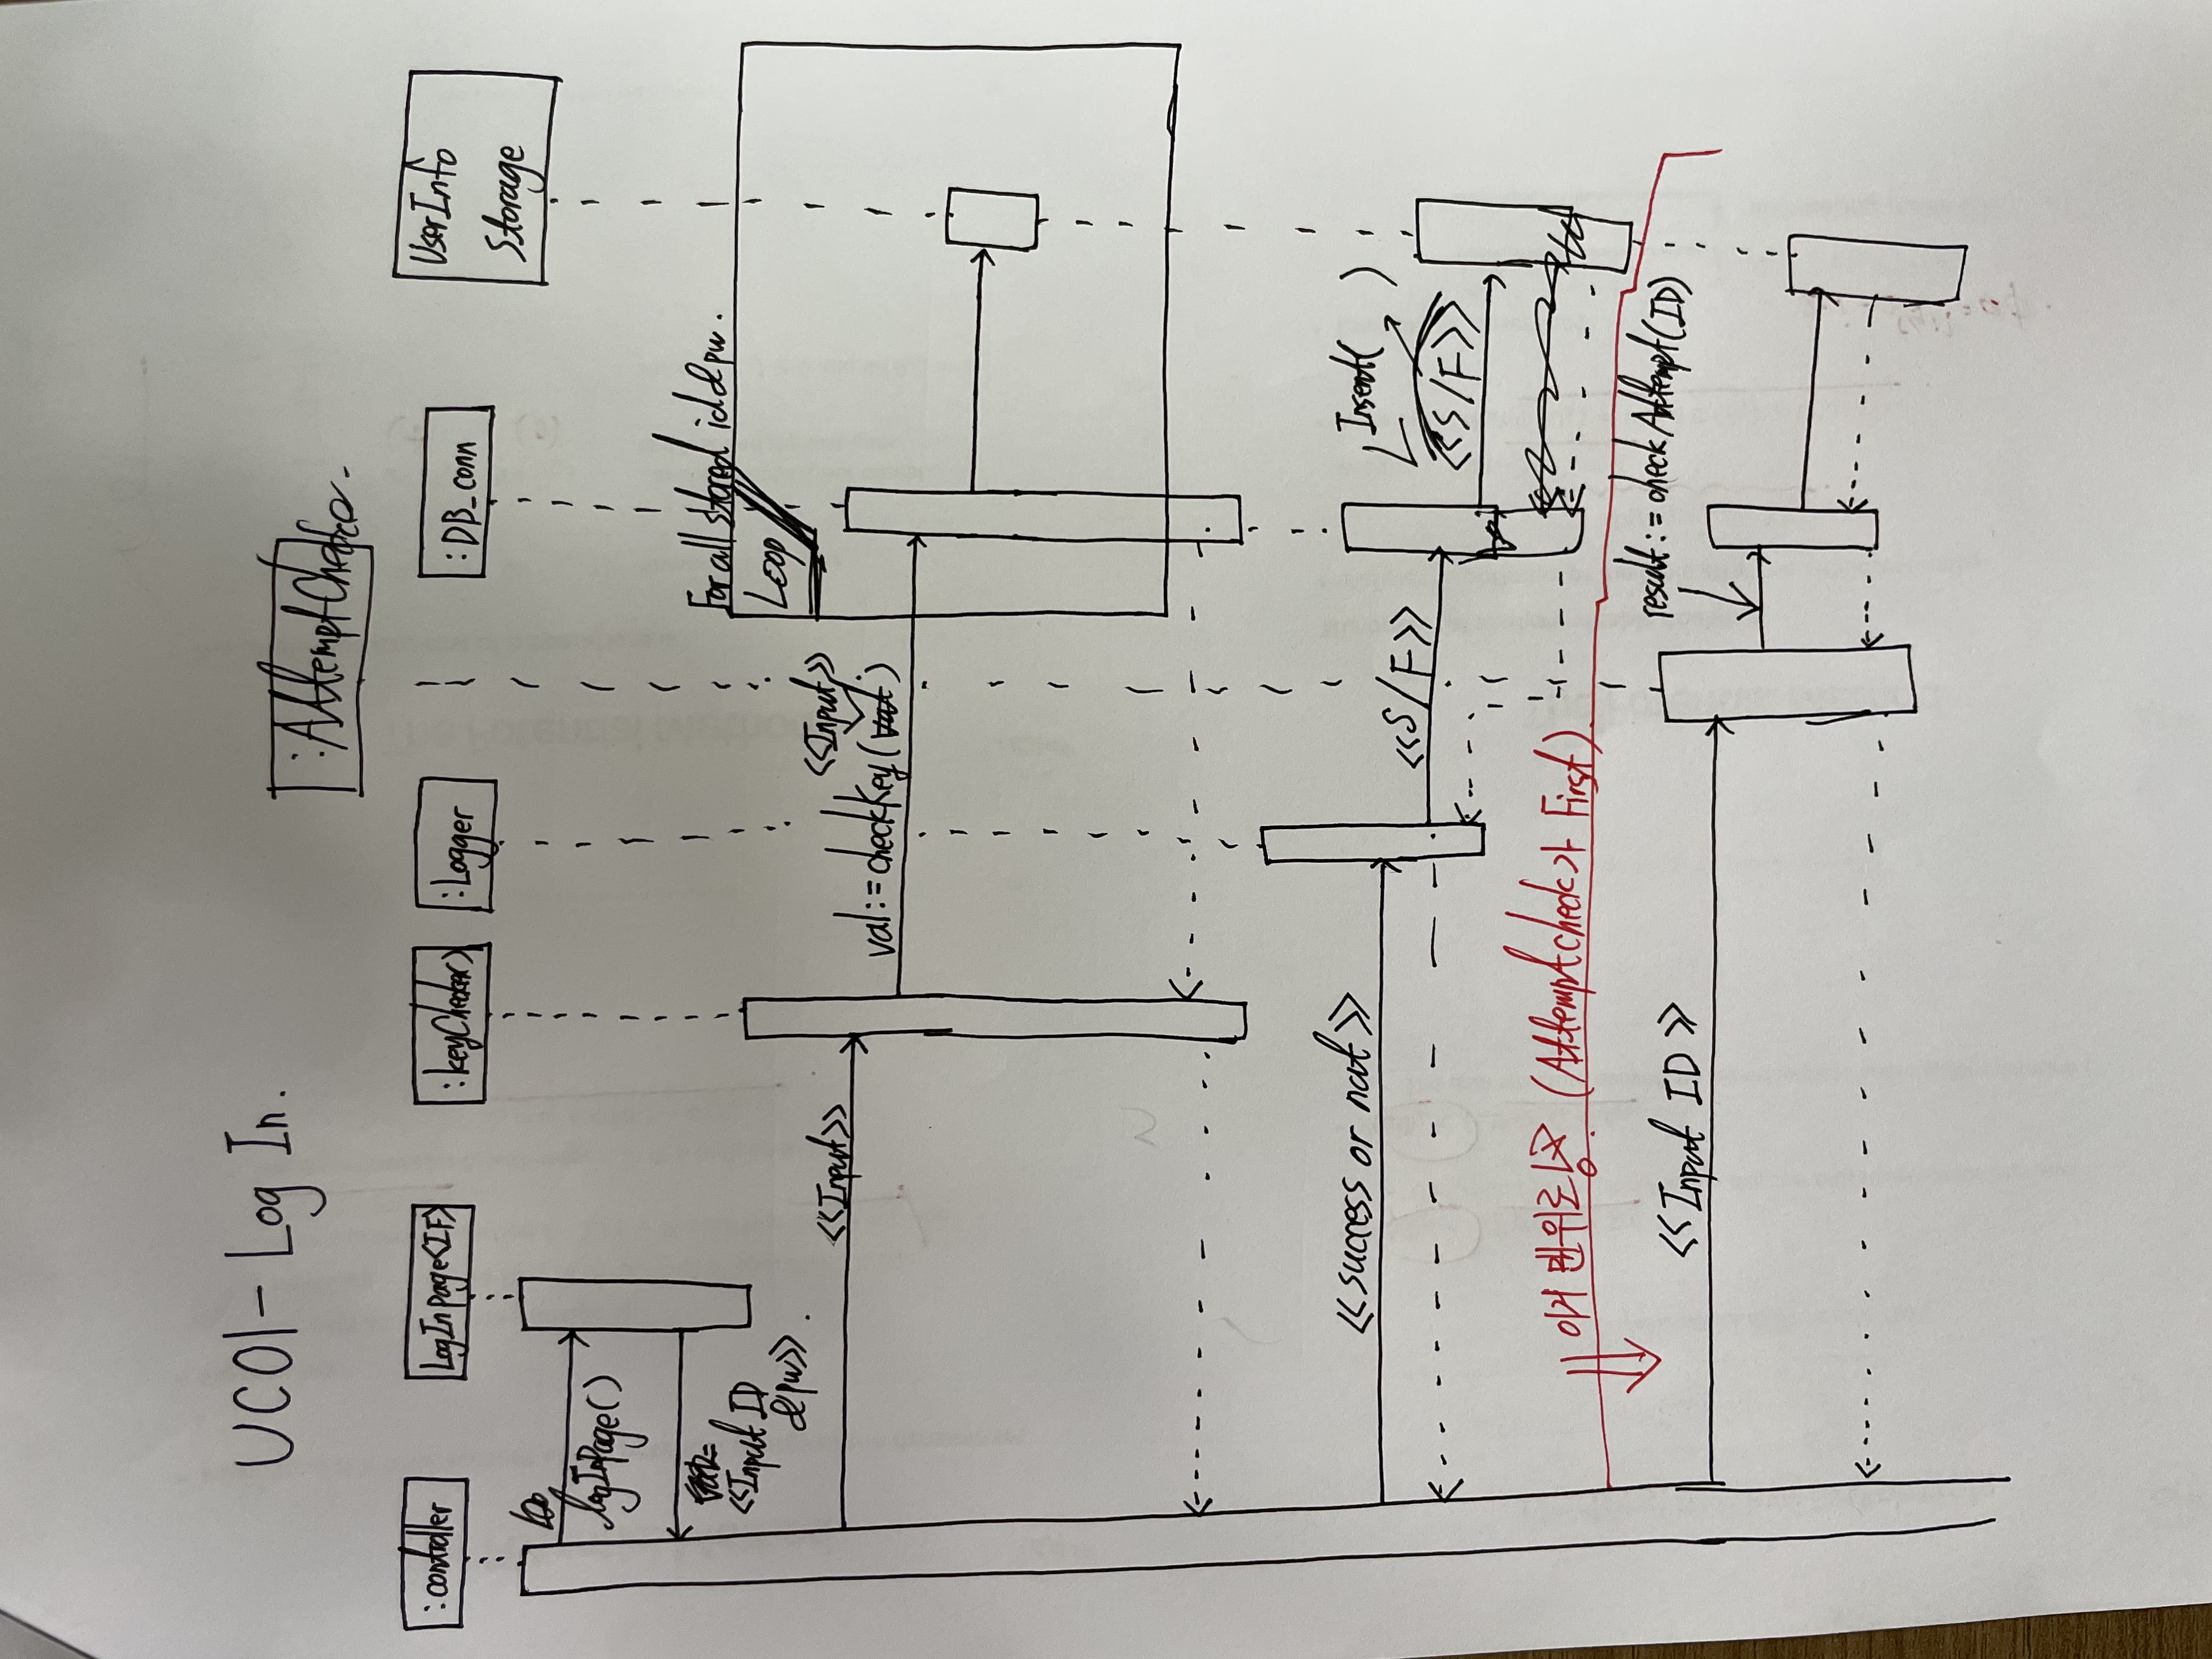 UC01 - Log In.
:AttemptChecker
:controller
LogInpage<IF>
:keyChecker)
:Logger
:DB_conn
UserInfo
Storage
logInPage()
<<Input ID
& pw>>.
For all stored id & pw.
Loop
<<Input>>
<<Input>>
val:=checkKey(val)
<<success or not>>
<<S/F>>
Insert( )
<<S/F>>
이거 맨위로 (Attempt check가 First)
<<Input ID>>
result:=check Attempt(ID)